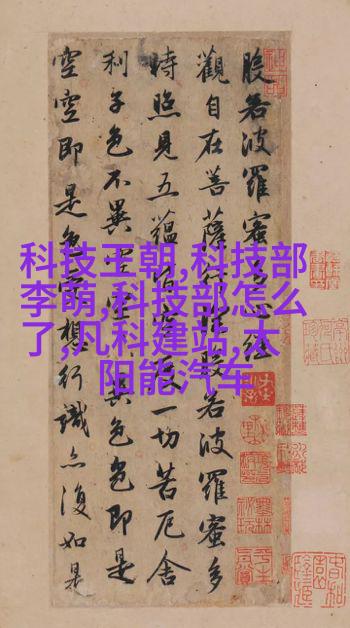 科技王朝,科技部
李萌,科技部怎么
了,凡科建站,太
阳能汽车
般若波羅蜜多心經
觀自在菩薩行深般若波羅蜜多
時照見五蘊皆空度一切苦厄舍
利子色不異空空不異色色即是
空空即是色受想行識亦復如是